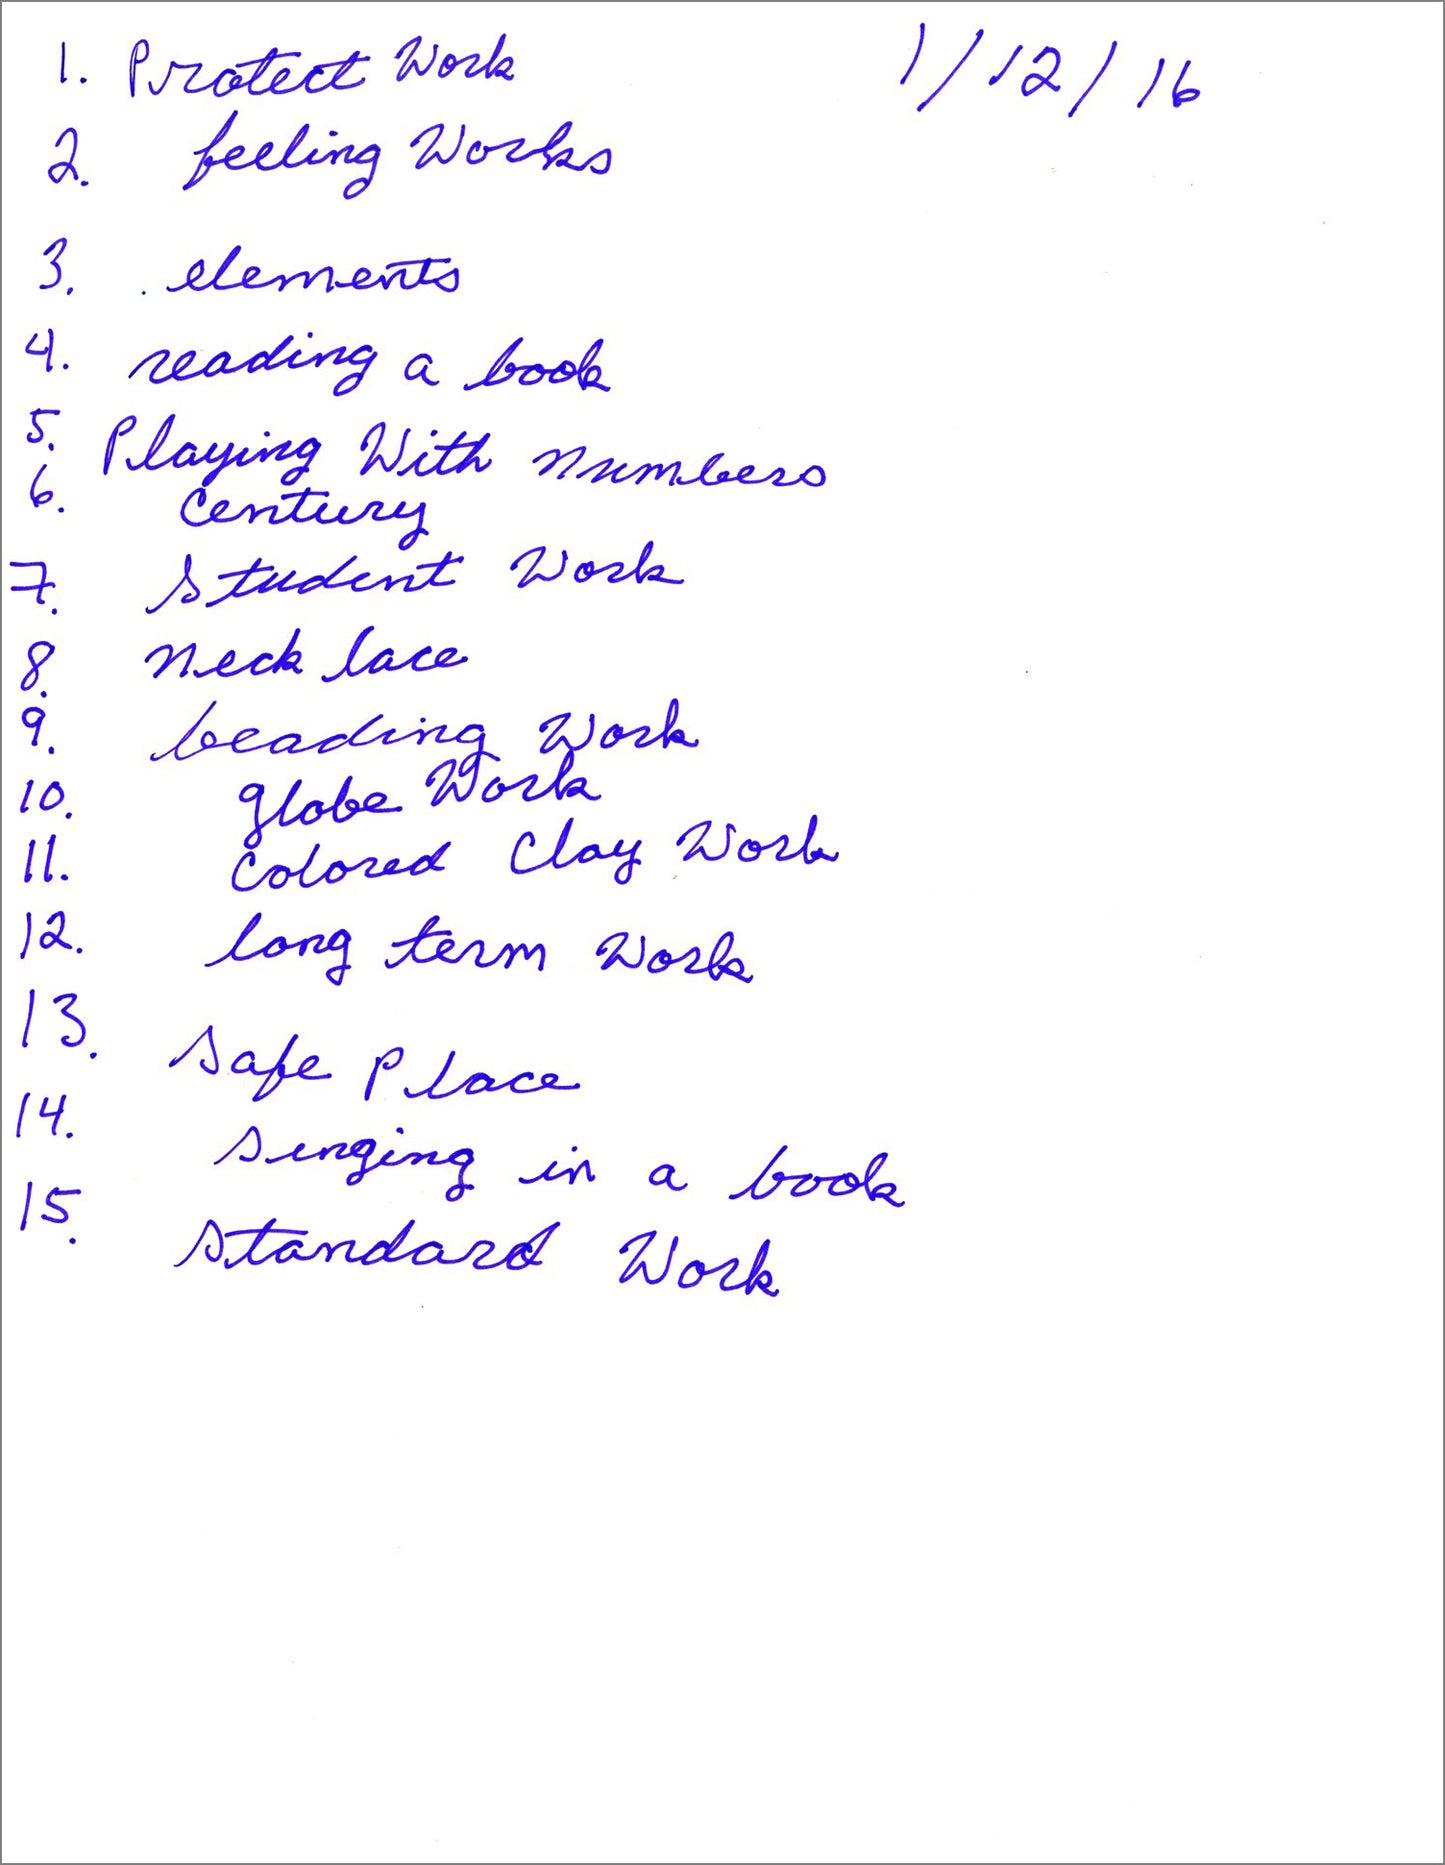 1. Protect Work 1/12/16
2. feeling Works
3. elements
4. reading a book
5. Playing With numbers
6. Century
7. Student Work
8. neck lace
9. beading Work
10. globe Work
11. Colored Clay Work
12. long term Work
13. Safe Place
14. singing in a book
15. standard Work